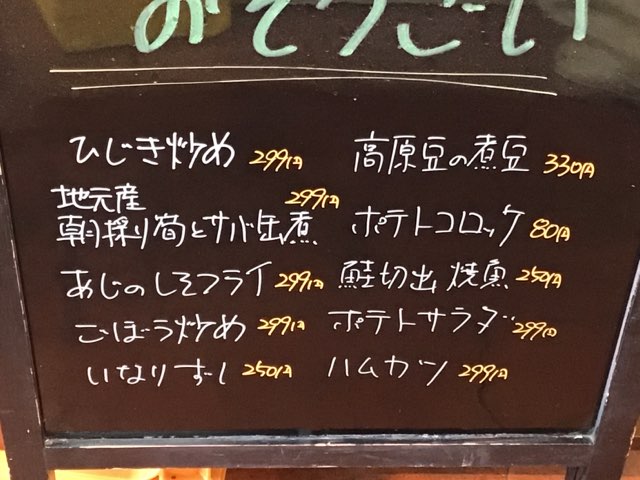 おそうざい
ひじき炒め 299円
地元産
朝採り筍とサバ缶煮 299円
あじのしそフライ 299円
ごぼう炒め 299円
いなりずし 250円
高原豆の煮豆 330円
ポテトコロッケ 80円
鮭切出し焼魚 250円
ポテトサラダ 299円
ハムカツ 299円